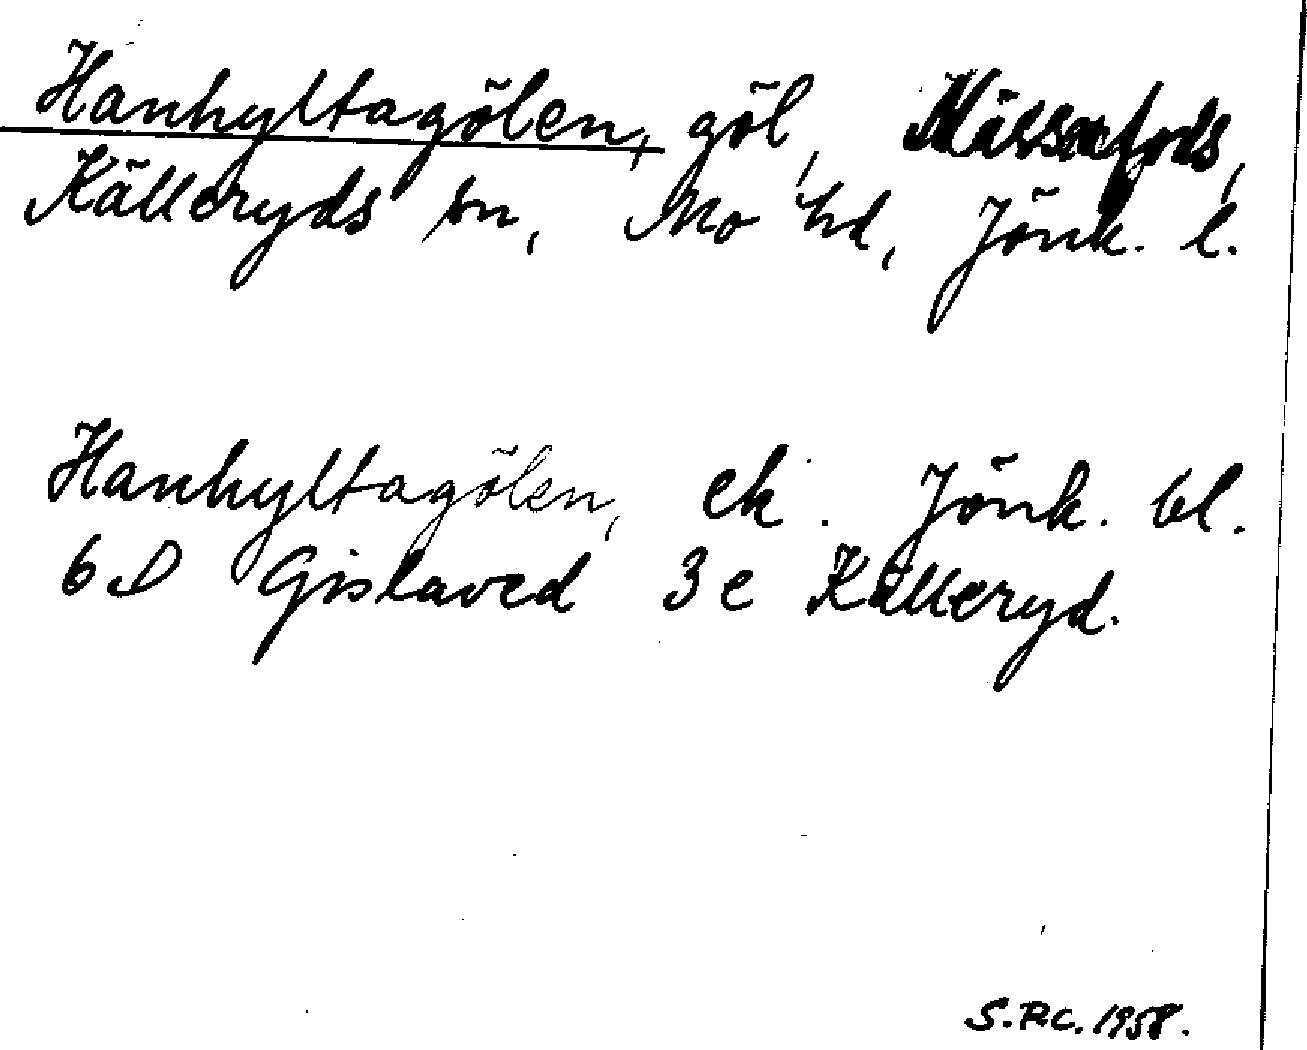 Hanhyltagölen, göl,
Källeryds sn, Mo hd, Jönk. l.
Hanhyltagölen, ek. Jönk. bl.
6D Gislaved 3e Källeryd.
S.P.C. 1958.